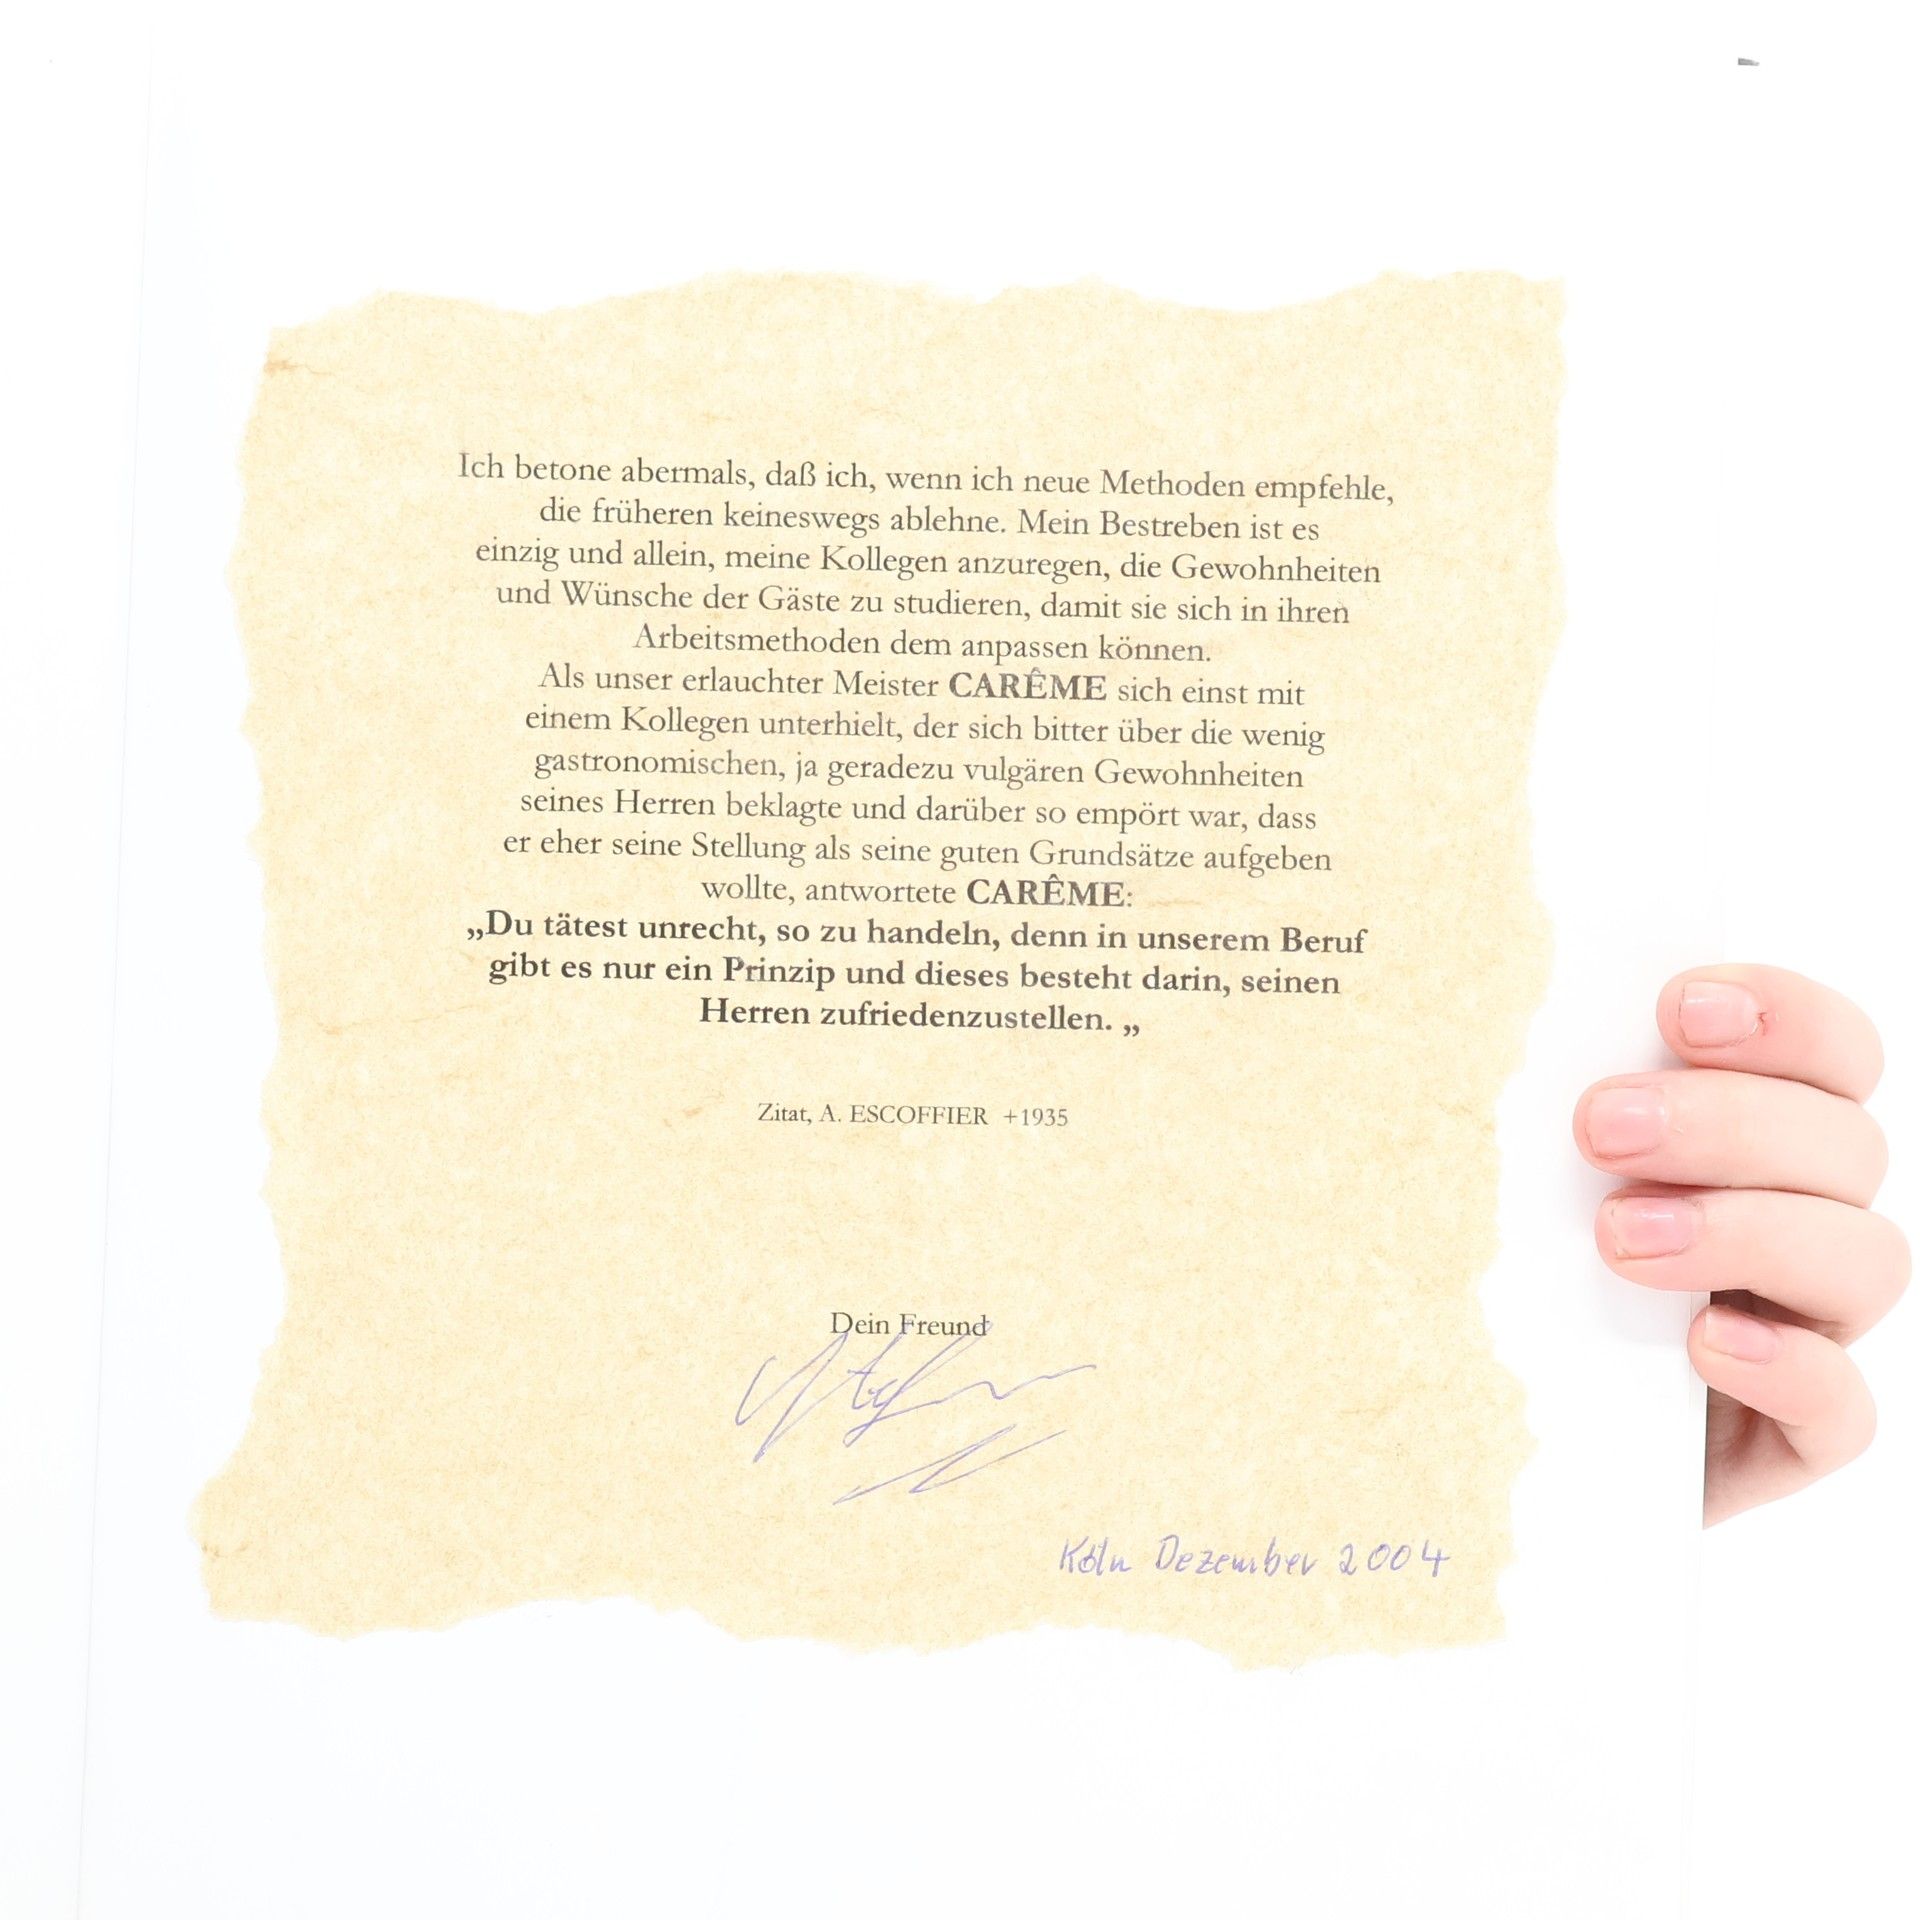 Ich betone abermals, daß ich, wenn ich neue Methoden empfehle,
die früheren keineswegs ablehne. Mein Bestreben ist es
einzig und allein, meine Kollegen anzuregen, die Gewohnheiten
und Wünsche der Gäste zu studieren, damit sie sich in ihren
Arbeitsmethoden dem anpassen können.
Als unser erlauchter Meister CARÊME sich einst mit
einem Kollegen unterhielt, der sich bitter über die wenig
gastronomischen, ja geradezu vulgären Gewohnheiten
seines Herren beklagte und darüber so empört war, dass
er eher seine Stellung als seine guten Grundsätze aufgeben
wollte, antwortete CARÊME:
„Du tätest unrecht, so zu handeln, denn in unserem Beruf
gibt es nur ein Prinzip und dieses besteht darin, seinen
Herren zufriedenzustellen. „
Zitat, A. ESCOFFIER +1935
Dein Freund
Köln Dezember 2004